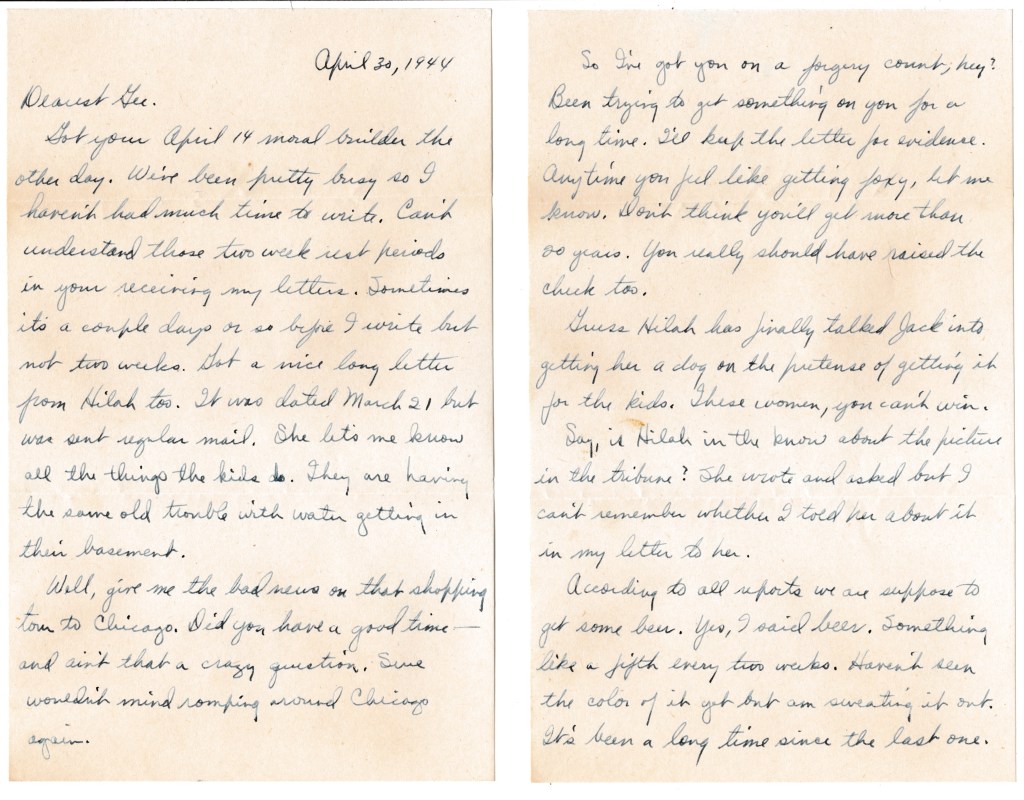 April 30, 1944
Dearest Gee.
Got your April 14 moral builder the
other day. We've been pretty busy so I
haven't had much time to write. Can't
understand those two week rest periods
in your receiving my letters. Sometimes
it's a couple days or so before I write but
not two weeks. Got a nice long letter
from Hilah too. It was dated March 21 but
was sent regular mail. She lets me know
all the things the kids do. They are having
the same old trouble with water getting in
their basement.
Well, give me the bad news on that shopping
tour to Chicago. Did you have a good time—
and ain't that a crazy question. Sure
wouldn't mind romping around Chicago
again.
So I've got you on a forgery count, hey?
Been trying to get something on you for a
long time. I'll keep the letter for evidence.
Anytime you feel like getting foxy, let me
know. Don't think you'll get more than
00 years. You really should have raised the
check too.
Guess Hilah has finally talked Jack into
getting her a dog on the pretense of getting it
for the kids. These women, you can't win.
Say, is Hilah in the know about the picture
in the tribune? She wrote and asked but I
can't remember whether I told her about it
in my letter to her.
According to all reports we are suppose to
get some beer. Yes, I said beer. Something
like a fifth every two weeks. Haven't seen
the color of it yet but am sweating it out.
It's been a long time since the last one.